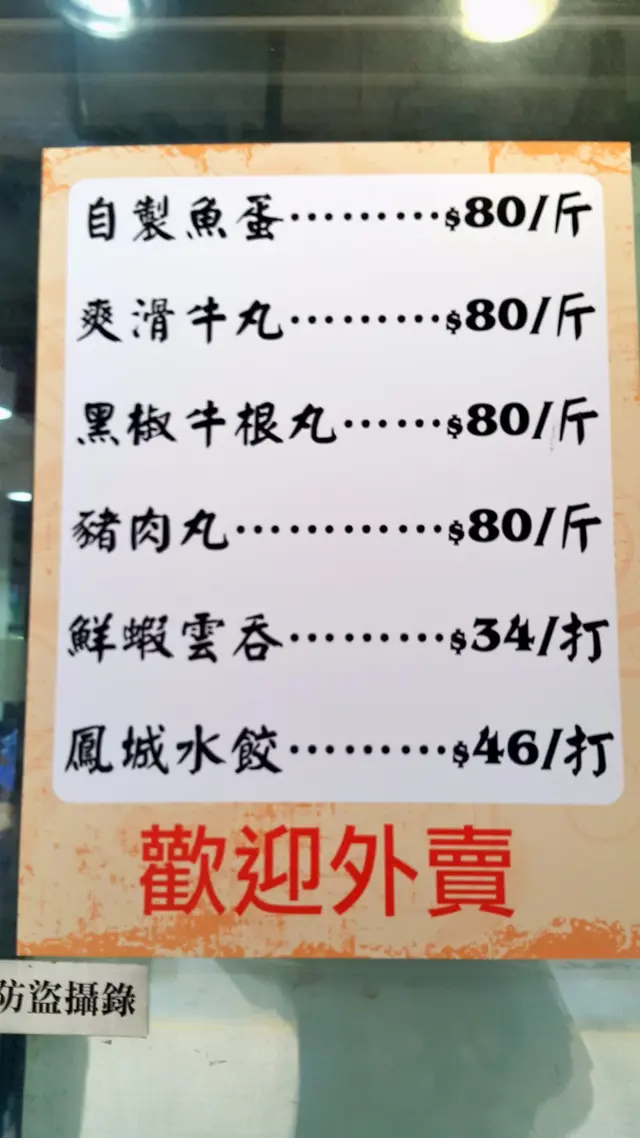 自製魚蛋………$80/斤
爽滑牛丸………$80/斤
黑椒牛根丸……$80/斤
豬肉丸…………$80/斤
鮮蝦雲吞………$34/打
鳳城水餃………$46/打
歡迎外賣
防盜攝錄